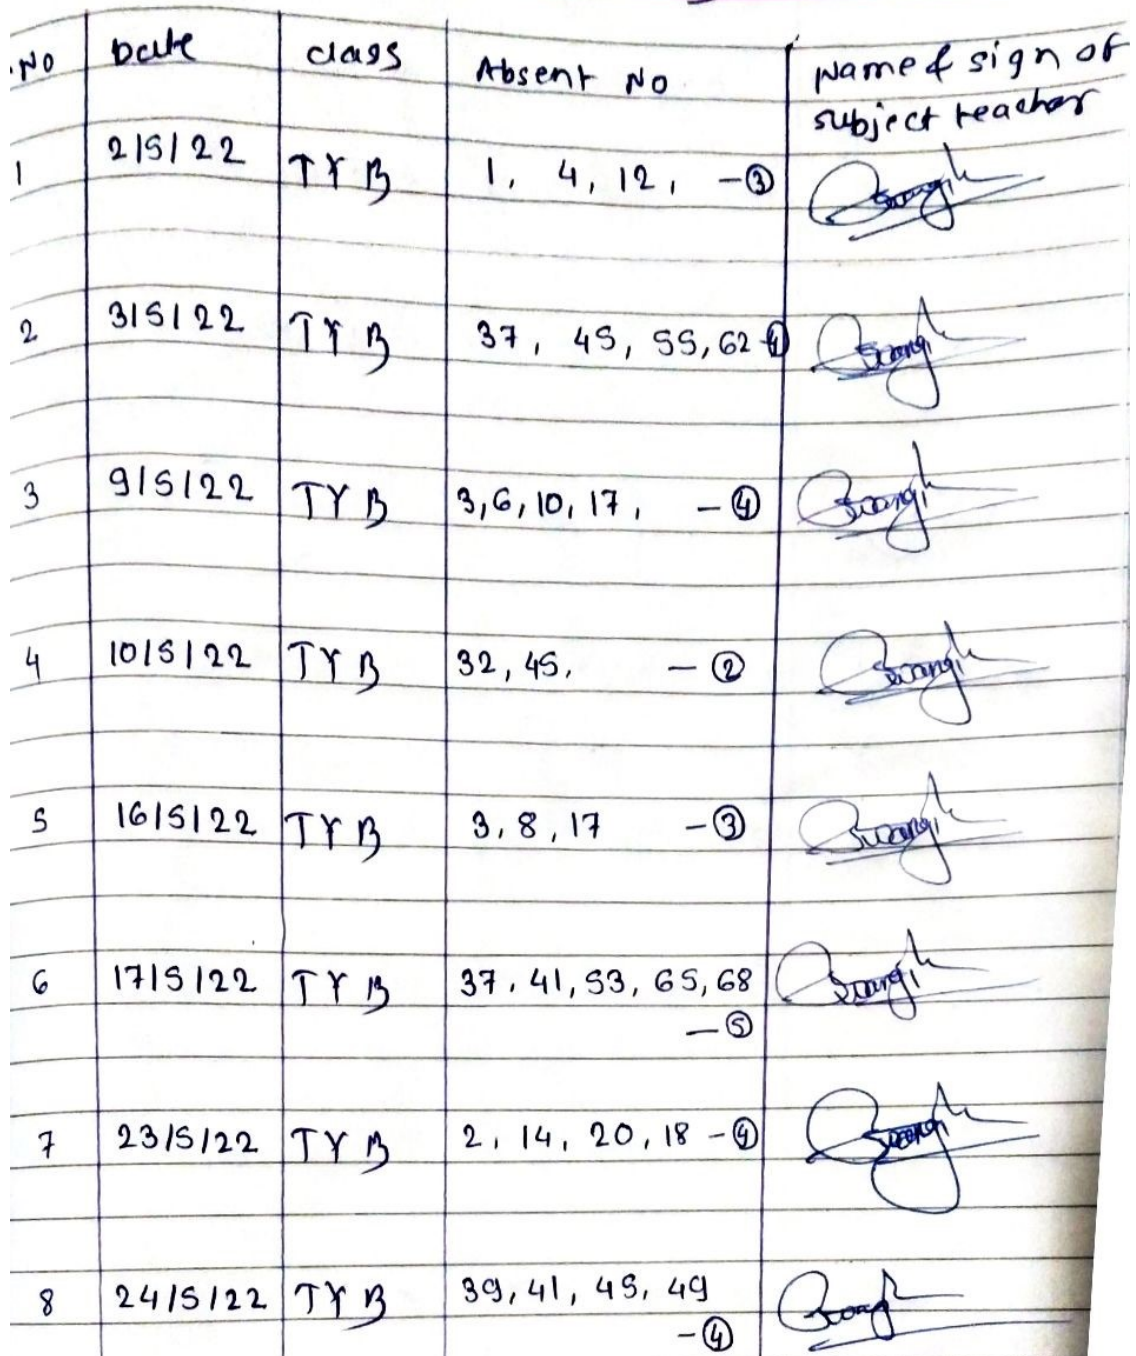 .No Date class Absent No Name & sign of
subject teacher
1 2/5/22 TYB 1, 4, 12, -③
2 3/5/22 TYB 37, 45, 55, 62-④
3 9/5/22 TYB 3, 6, 10, 17, -④
4 10/5/22 TYB 32, 45, -②
5 16/5/22 TYB 3, 8, 17 -③
6 17/5/22 TYB 37, 41, 53, 65, 68
-⑤
7 23/5/22 TYB 2, 14, 20, 18 -④
8 24/5/22 TYB 39, 41, 45, 49
-④